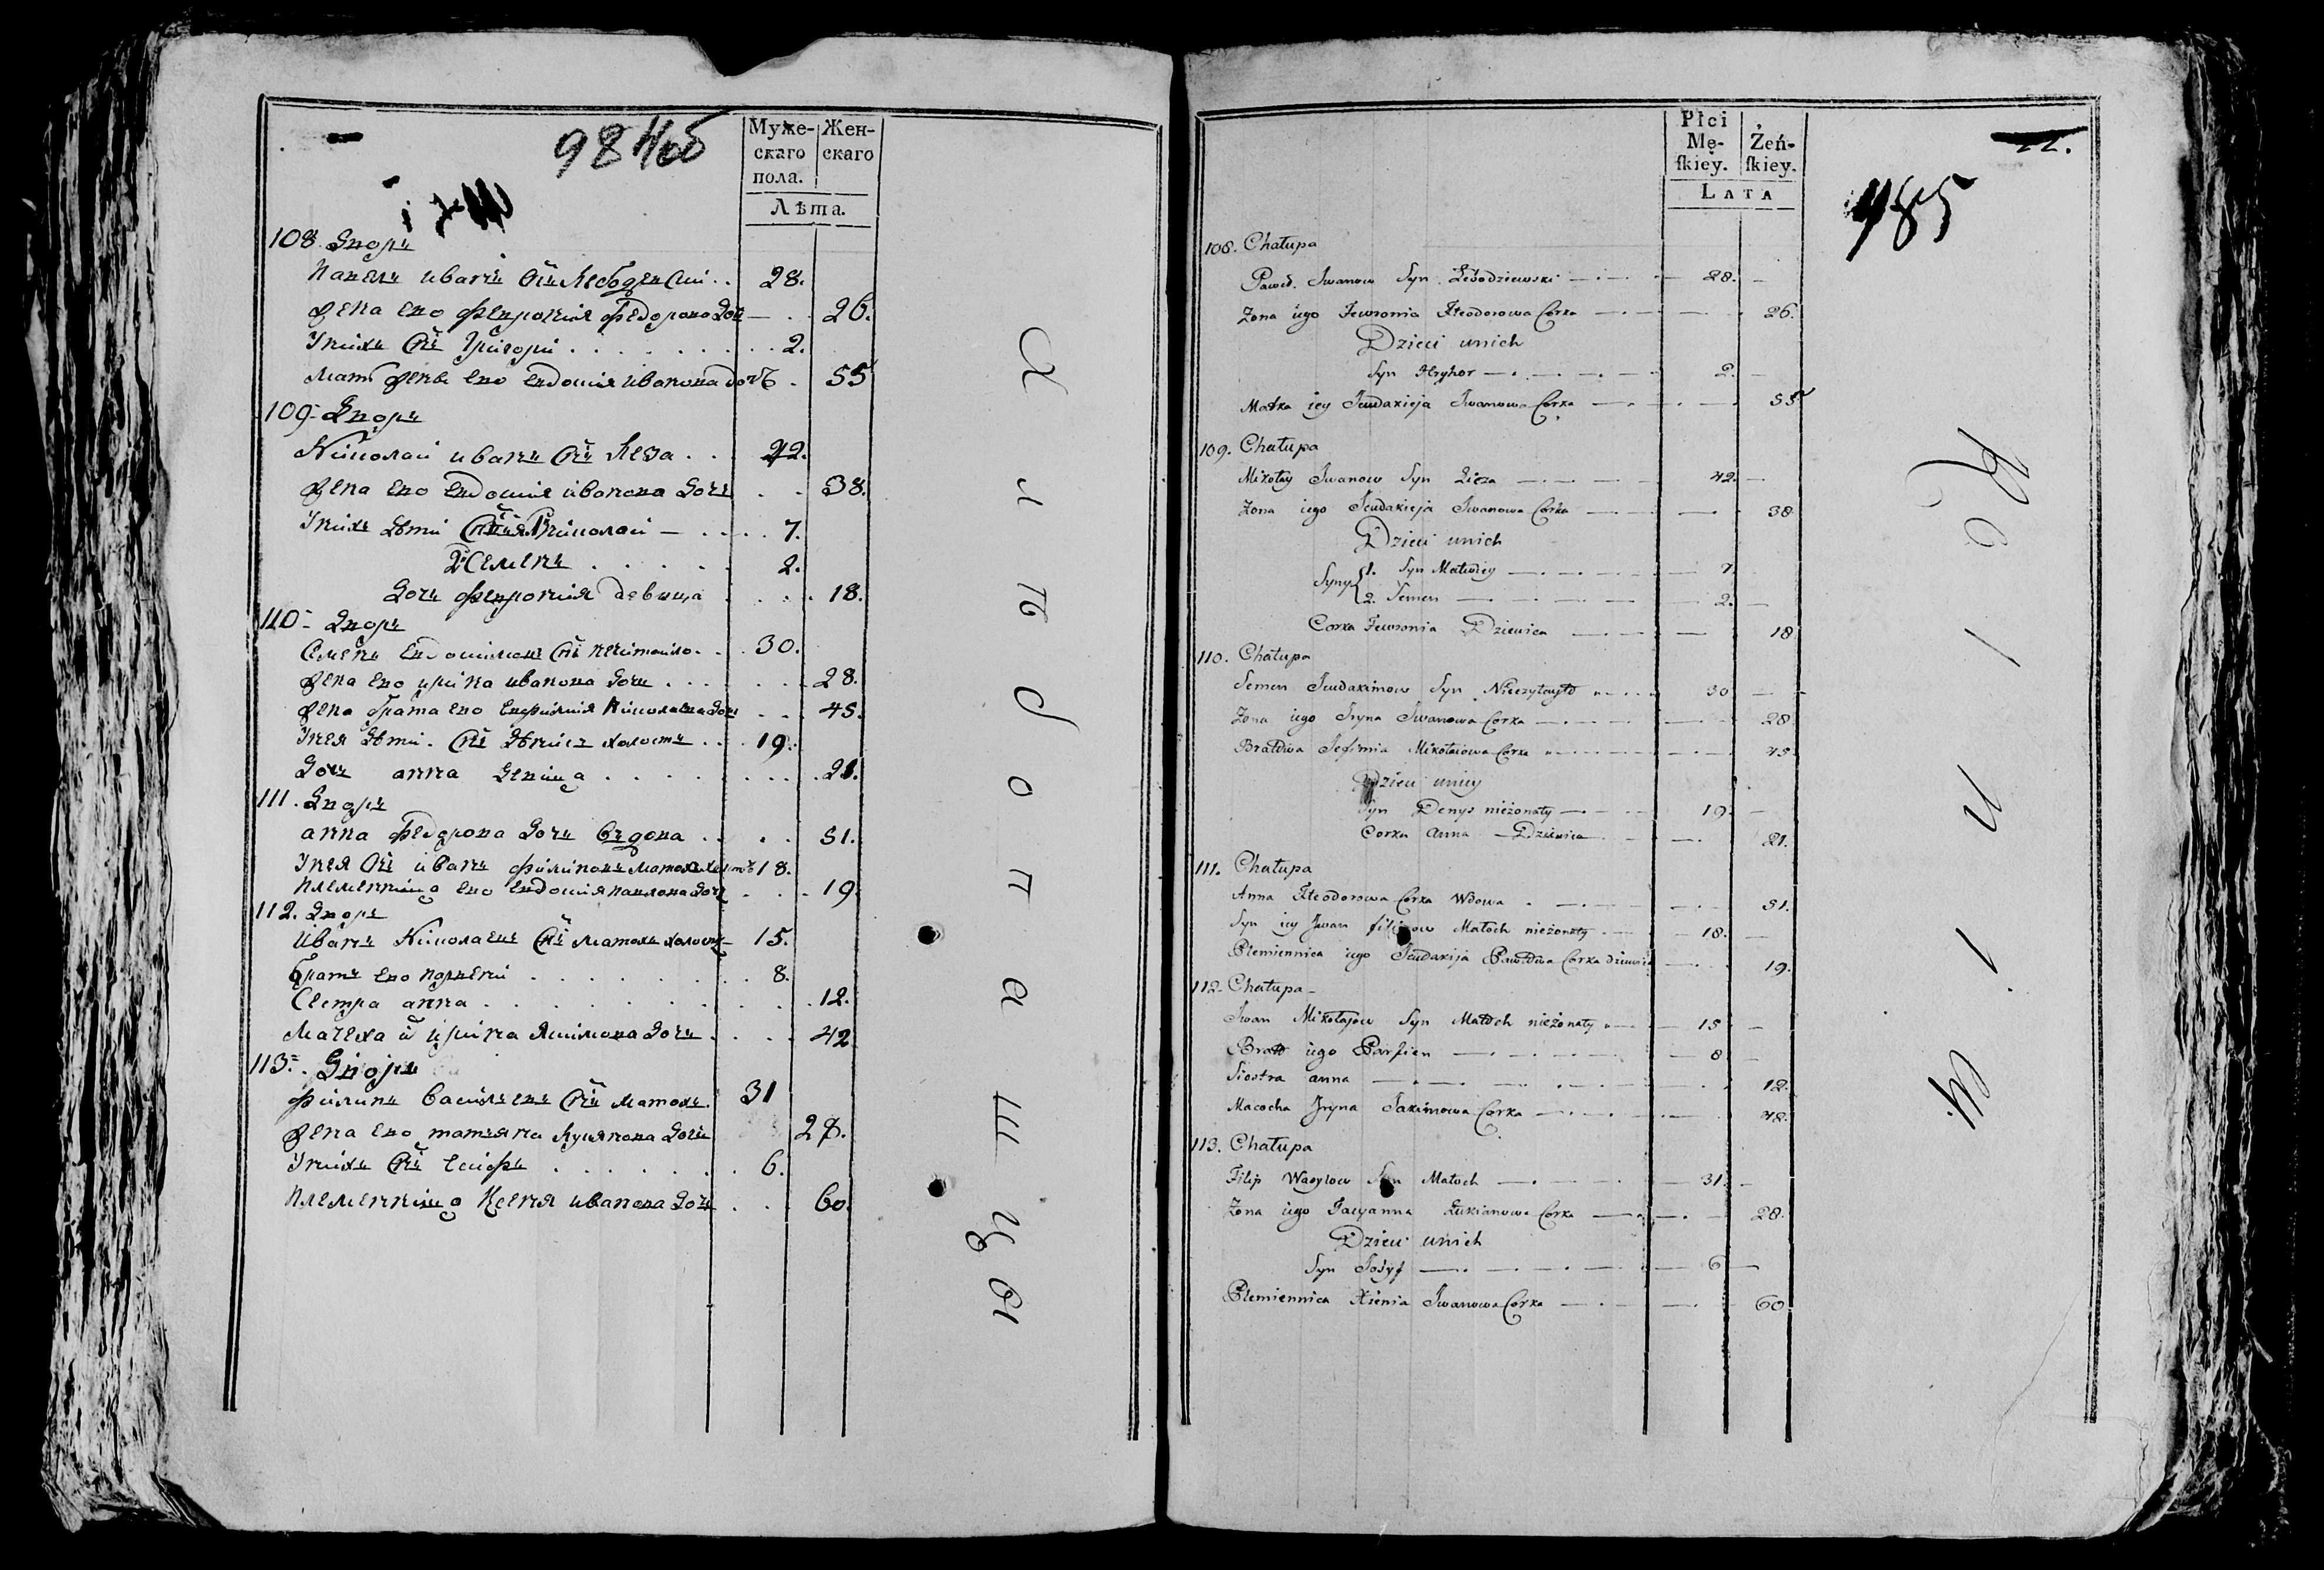 98 Коб
Муже-скаго пола. Жен-скаго
Лѣта.
108 Дворъ
Павелъ иванъ снъ Лебодевски . . 28.
жена ево Февронія Федорова дочь — . 26.
У нихъ снъ Григори . . . . . . 2.
мать жены ево евдокія иванова дочъ . 55
109 Дворъ
Николаи иванъ снъ Леза . . 42.
жена ево евдокія иванова дочъ . . 38.
У нихъ дѣти Николаи — . . . 7.
2 Семенъ . . . . 2.
дочъ февронія девица . . . 18.
110 Дворъ
Семенъ евдокимовъ снъ . . 30.
жена ево ирина иванова дочъ . . . 28.
жена брата ево евфимія Николаева дочъ . . . 45.
У нея дѣти. снъ дѣнисъ холостъ . . 19.
дочъ анна девица . . . . . . 21.
111. Дворъ
анна федорова дочъ вдова . . . 51.
У нея снъ иванъ филиповъ Матохъ холостъ 18.
племенница ево евдокія павлова дочъ . . . 19.
112. Дворъ
иванъ Николаевъ снъ матохъ холостъ — 15.
братъ ево парфени . . . . . . 8.
Сестра анна . . . . . . . 12.
Мачеха и ирина Якимова дочъ . . . 42
113. Дворъ
филипъ василъевъ снъ матохъ. 31
жена ево татъяна лукянова дочъ 28.
У нихъ снъ есифъ . . . . . 6.
племенница Ксения иванова дочъ . . . 60.
Płci Mę-ſkiey. Żeń-ſkiey.
LATA
485
108. Chałupa
Paweł. Iwanow Syn. Lebodziewski — 28. —
Zona iego Fewronia Fteodorowa Corka — 26.
Dzieci unich
Syn Hryhor — 2. —
Matka iey Jeudakieja Iwanowa Corka — 55
109. Chałupa
Mikołay Iwanow Syn Lieza — 42. —
Zona iego Jeudakieja Iwanowa Corka — 38
Dzieci unich
Syny 1. Syn Matwiey — 7.
2. Semen — 2. —
Corka Fewronia Dziewica — 18
110. Chałupa
Semen Jeudakimow Syn Nieczytayło — 30 —
Zona iego Iryna Iwanowa Corka — 28
Bratowa Jefimia Mikołaiowa Corka — 45
Dzieci uniey
Syn Denys nieżonaty — 19. —
Corka Anna — Dziewica — 21.
111. Chałupa
Anna Fteodorowa Corka Wdowa — 51.
Syn iey Iwan filipow Matoch nieżonaty — 18. —
Plemiennica iego Jeudakija Pawłowa Corka dziewica — 19.
112. Chałupa —
Iwan Mikołajow Syn Matoch nieżonaty — 15 —
Brat iego Parfien — 8 —
Siostra anna — 12.
Macocha Iryna Jakimowa Corka — 42.
113. Chałupa
Filip Wasylow Syn Matoch — 31. —
Zona iego Tacyanna Łukianowa Corka — 28.
Dzieci unich
Syn Josyf — 6 —
Plemiennica Xienia Iwanowa Corka — 60